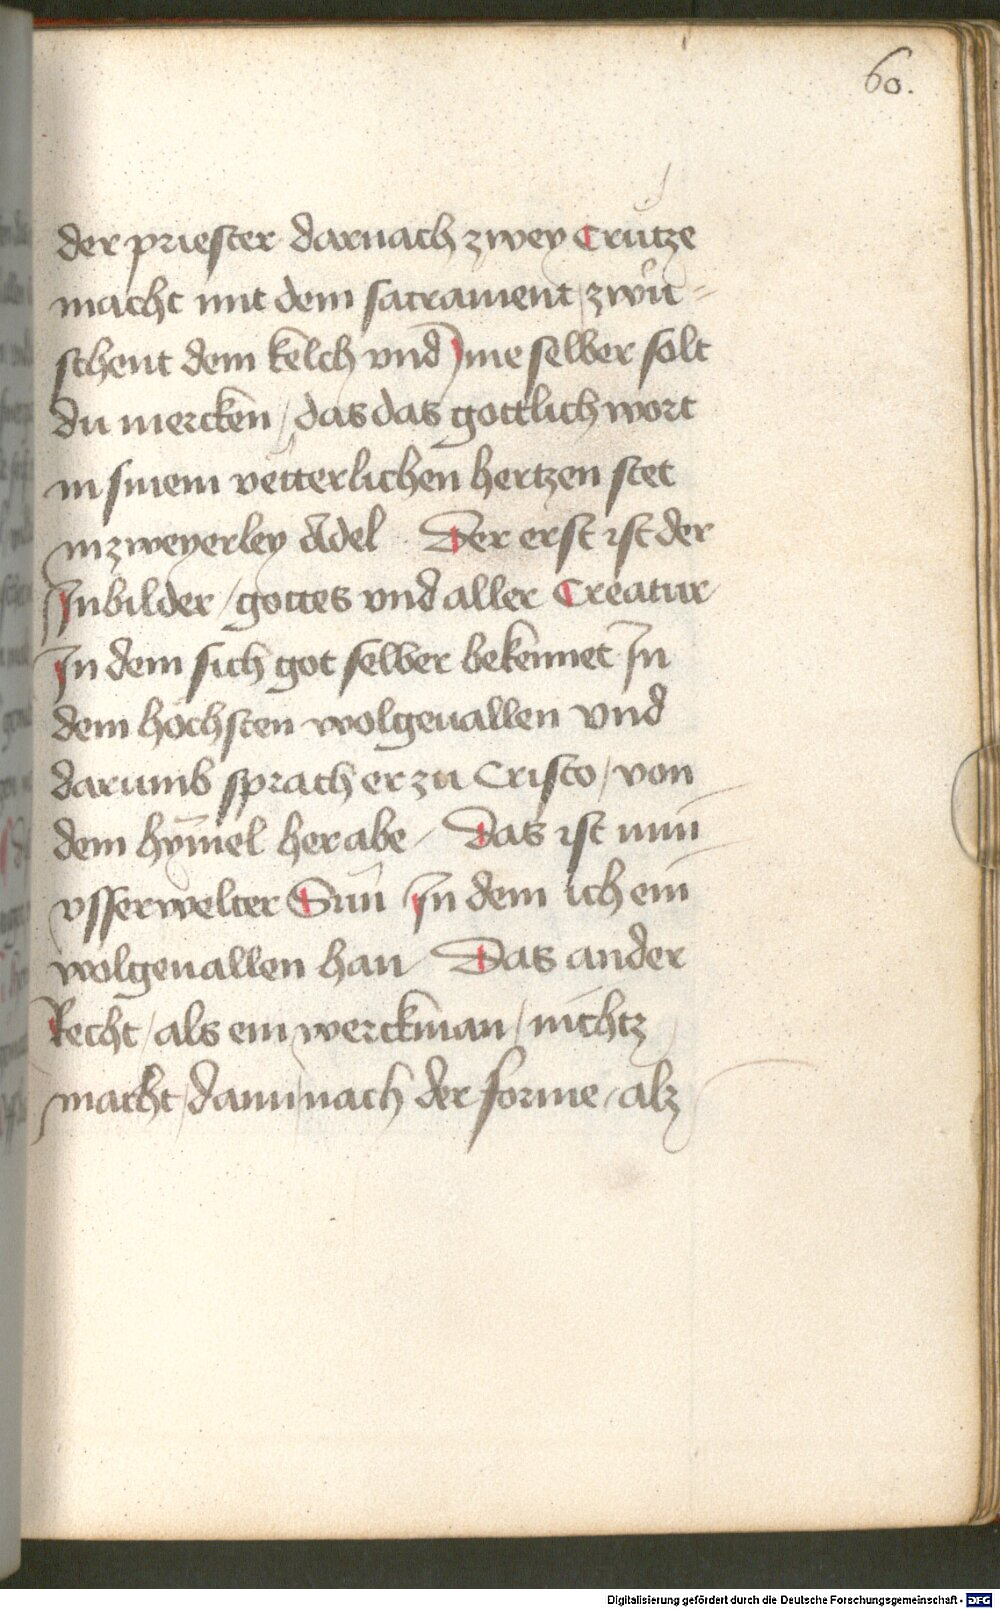 60.
der priester darnach zwey Crutze
macht mit dem sacrament zwu̇=
schent dem kelch vnd Jme selber solt
du mercken / das das gottlich wort
in sinem vetterlichen hertzen stet
in zweyerley Adel Der erst ist der
Jnbilder / gottes vnd aller Creatur
Jn dem sich got selber bekennet Jn
dem hochsten wolgeuallen vnd
darumb sprach er zu Cristo / von
dem hym̄el her abe / Das ist min
vsserwelter Sun Jn dem ich ein
wolgeuallen han Das ander
Recht / als ein werckman / nichtz
macht / dann nach der forme / alz
Digitalisierung gefördert durch die Deutsche Forschungsgemeinschaft - DFG